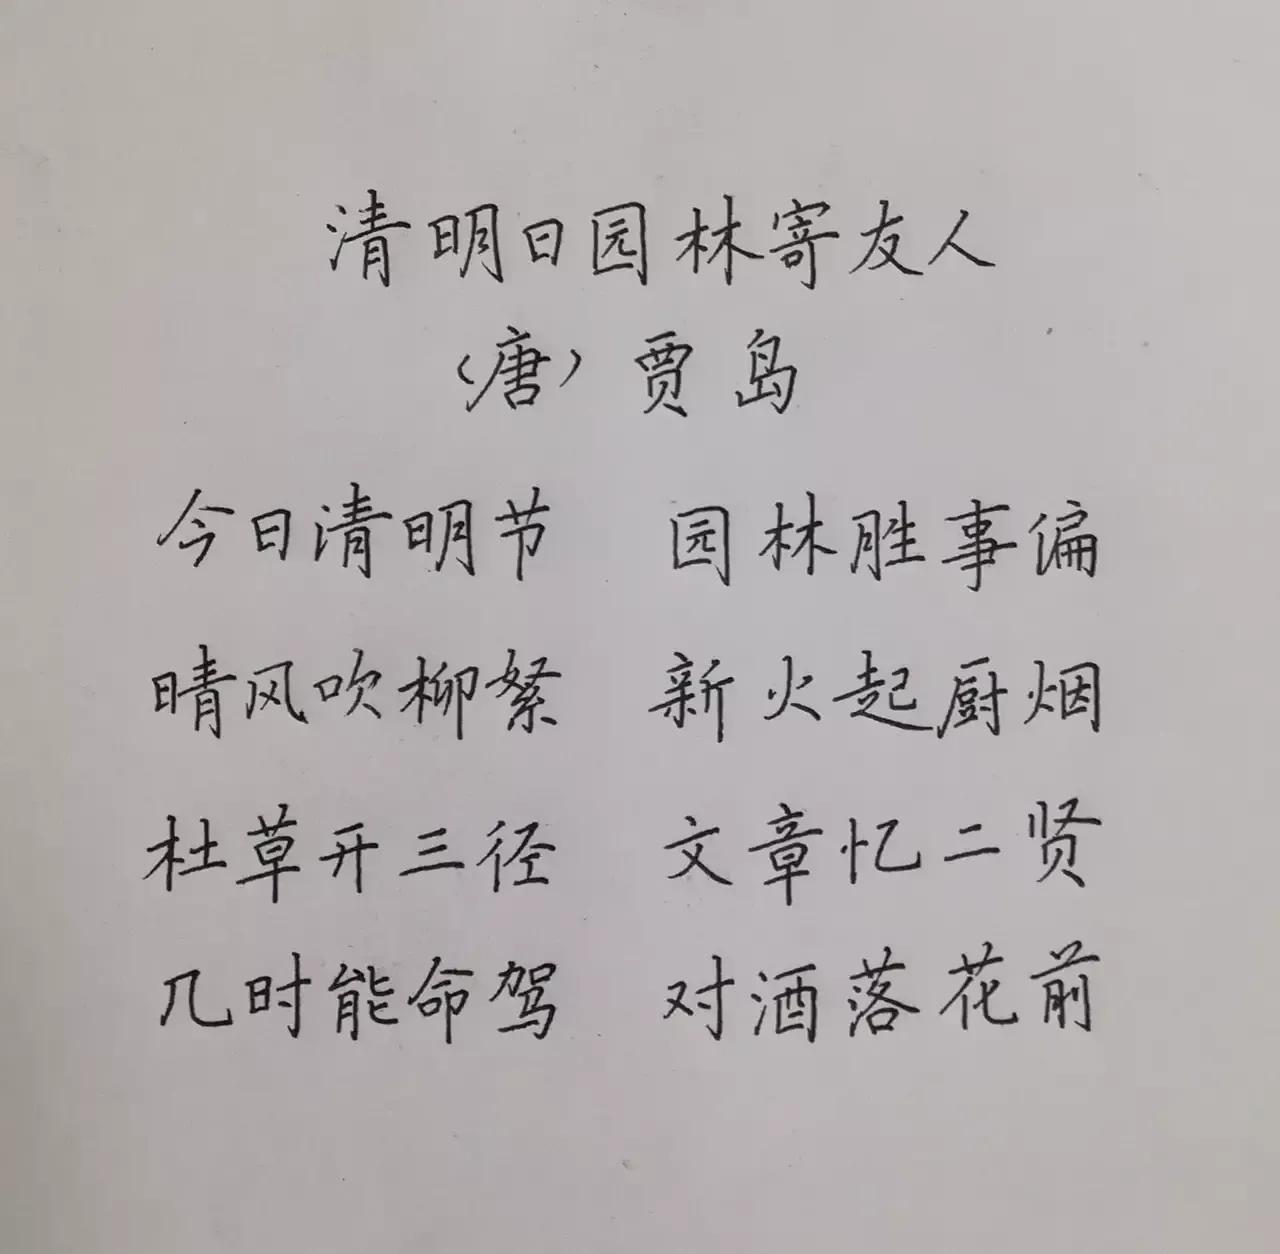 清明日园林寄友人
(唐)贾岛
今日清明节 园林胜事偏
晴风吹柳絮 新火起厨烟
杜草开三径 文章忆二贤
几时能命驾 对酒落花前